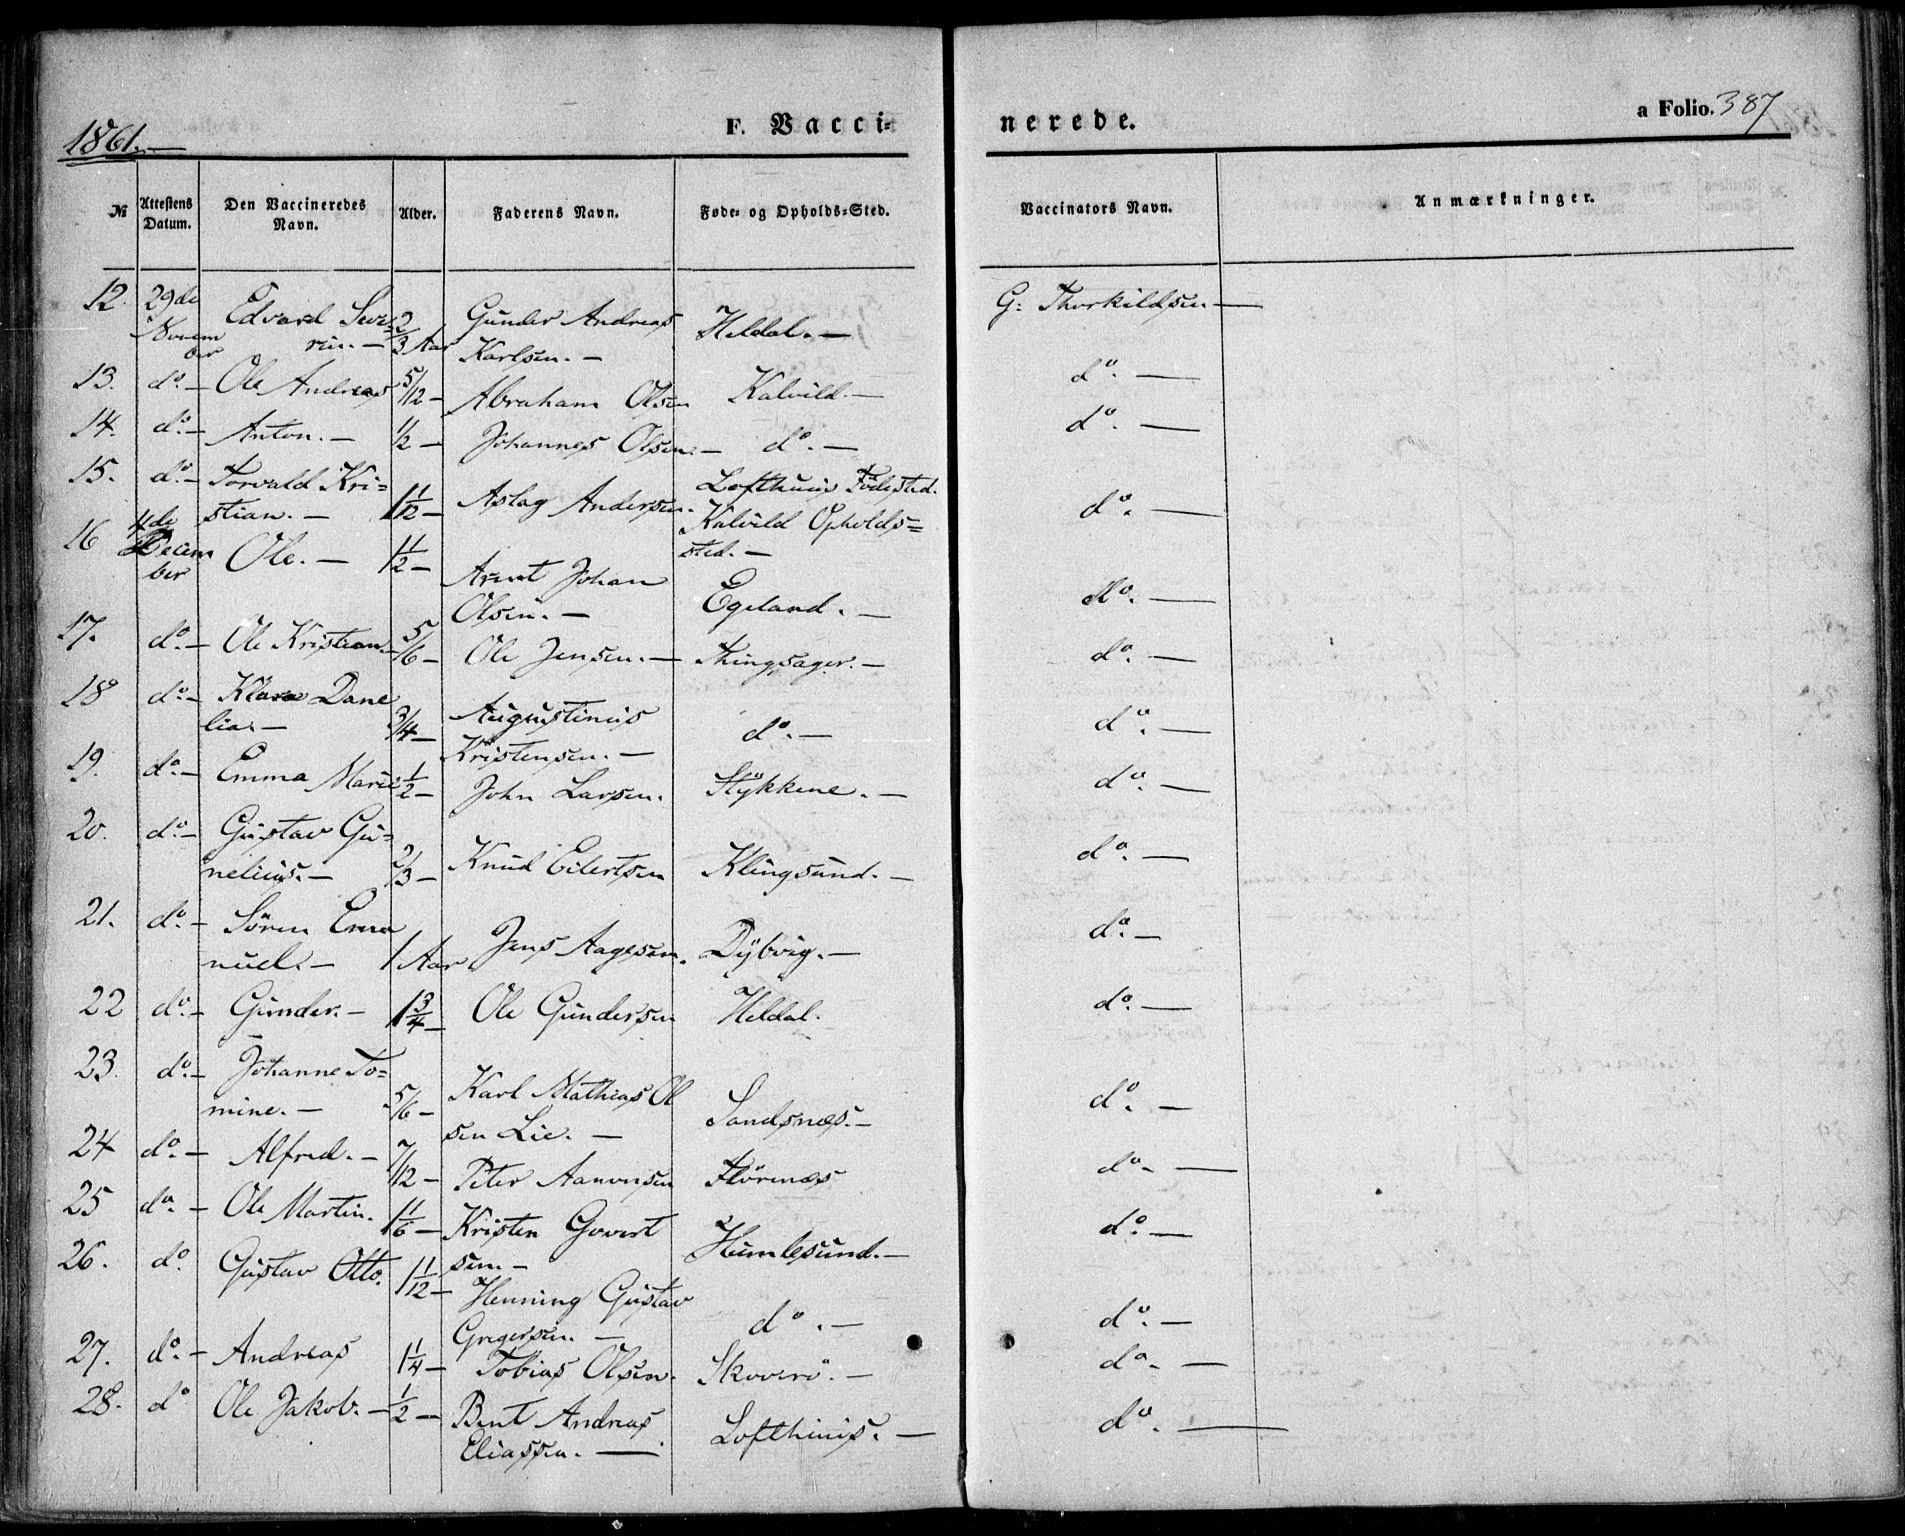 1861.
F. Vacci-
nerede.
a Folio. 387
№
Attestens Datum.
Den Vaccineredes Navn.
Alder.
Faderens Navn.
Føde- og Opholds-Sted.
Vaccinators Navn.
Anmærkninger.
12. 29de Edvard Seve= 2/3 Gunder Andreas Heldal.— G: Thorkildsen —
Novem rin.— Aar Karlsen.—
ber
13. do.— Ole Andreas 5/12 — Abraham Olsen Kalvild.— do. —
14. do.— Anton.— 1/2 — Johannes Olsen.— do.— do. —
15. do.— Torvald Kri= 1 1/12 — Aslag Andersen. Lofthuus Fødested. do. —
stian.— Kalvild Opholds=
sted.—
16 4de Ole.— 1 1/2 — Arent Johan Egeland.— do. —
Decem Olsen.—
ber
17. do.— Ole Kristian.— 5/6 — Ole Jensen.— Thingsager.— do. —
18 do.— Klara Dane 3/4 — Augustinus do.— do. —
lia.— Kristensen.—
19. do.— Emma Marie 1/2 — John Larsen. Stykkene.— do. —
20. do.— Gustav Gu= 2/3 — Knud Eilertsen Klingsund.— do. —
nelius.—
21. do.— Sören Ema 1 Aar Jens Aagesen. Dybvig.— do. —
nuel.—
22 do.— Gunder.— 1 3/4 — Ole Gundersen Heldal. do. —
23. do.— Johanne To= 5/6 — Karl Mathias Ol Sandsnæs.— do. —
mine.— sen Lie.—
24 do.— Alfred.— 7/12 — Peter Aanonsen Flörenæs do. —
25 do.— Ole Martin. 1 1/6 — Kristen Govert Humlesund.— do. —
sen.—
26. do. Gustav Otto. 1 1/12 — Henning Gustav do.— do. —
Gregersen.—
27. do.— Andreas 1 1/4 — Tobias Olsen. Skoverö.— do. —
28. do Ole Jakob.— 1/2 — Bent Andreas Lofthuus.— do. —
Eliassen.—